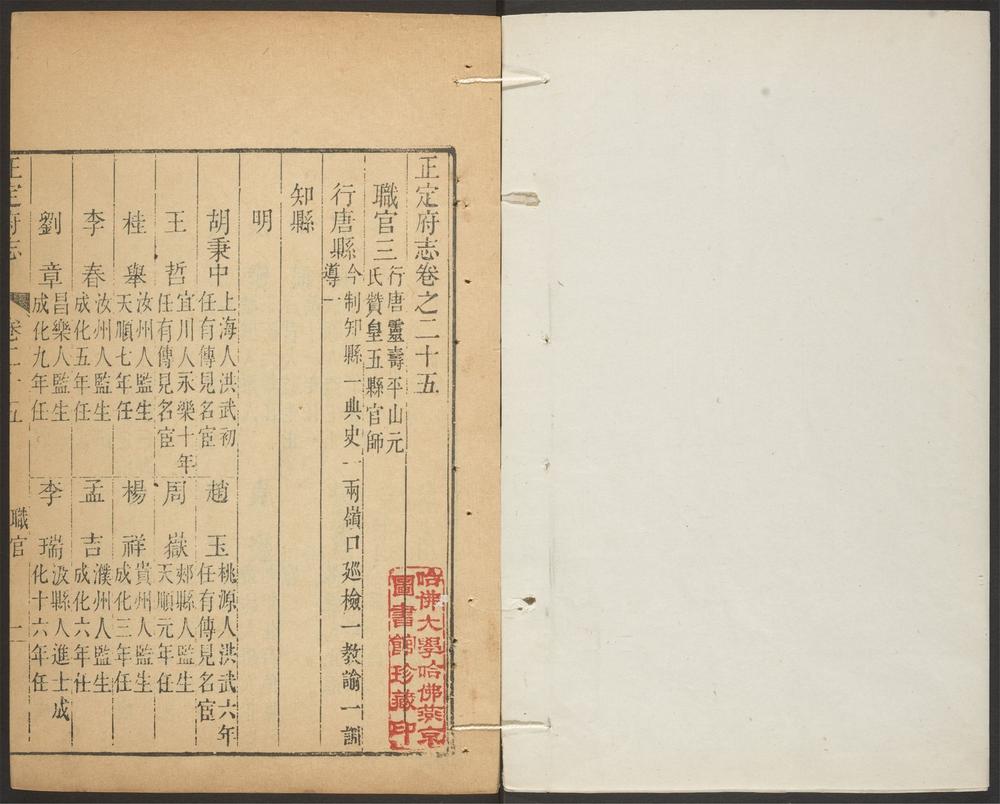 正定府志卷之二十五
職官三行唐靈壽平山元
氏贊皇五縣官師
行唐縣今制知縣一典史一兩嶺口廵檢一教諭一訓
導一
知縣
明
胡秉中上海人洪武初
任有傳見名宦
趙玉桃源人洪武六年
任有傳見名宦
王哲宜川人永樂十年
任有傳見名宦
周嶽郟縣人監生
天順元年任
桂舉汝州人監生
天順七年任
楊祥貴州人監生
成化三年任
李春汝州人監生
成化五年任
孟吉濮州人監生
成化六年任
劉章昌樂人監生
成化九年任
李瑞汲縣人進士成
化十六年任
正定府志
卷二十五
職官
一
哈佛大學哈佛燕京
圖書館珍藏印